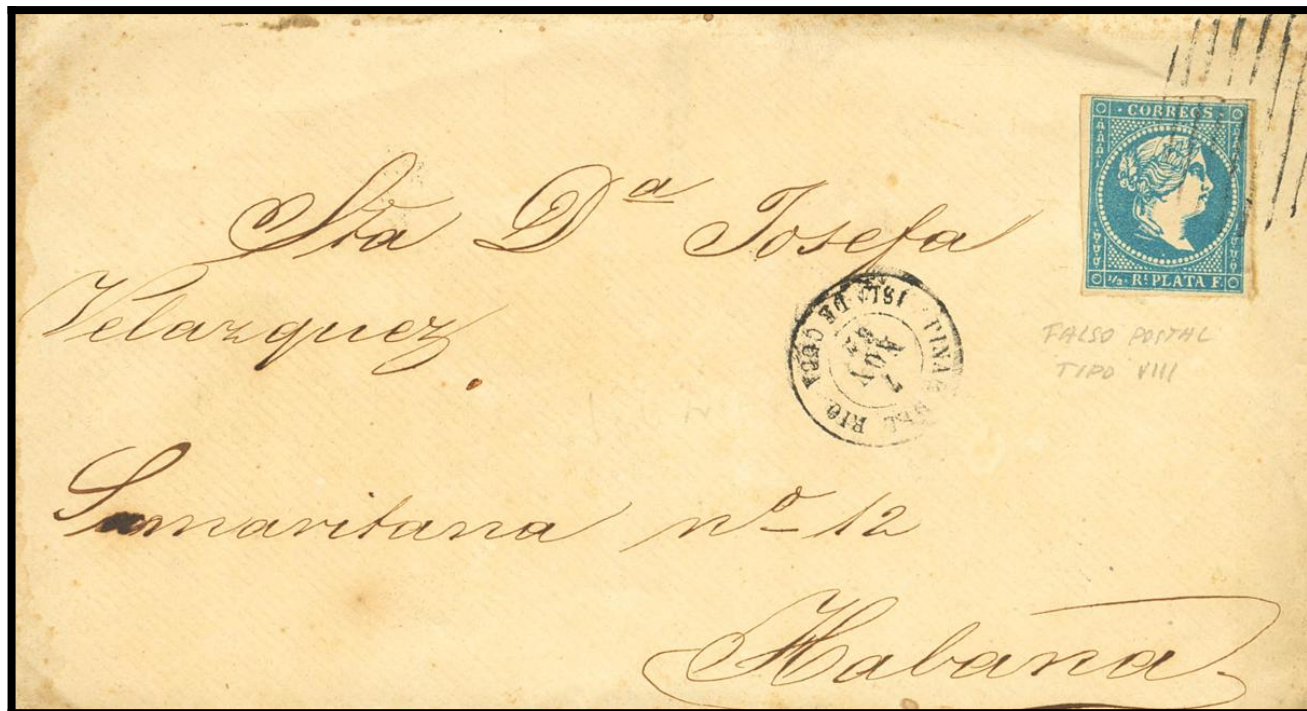 CORREOS
½ Rl. PLATA F.
Sta Dª Josefa
Velazquez
PINAR DEL RIO
ISLA DE CUBA
7
FALSO POSTAL
TIPO VIII
Samaritana nº 12
Habana